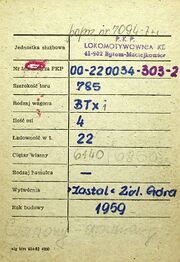 Jednostka służbowa
P. K. P.
LOKOMOTYWOWNIA KŁ
41-902 Bytom-Maciejkowice
PKP 00-220034-303-2
Szerokość toru 785
Rodzaj wagonu BTxi
Ilość osi 4
Ładowność w t. 22
Ciężar własny 6140
Rodzaj hamulca —
Wytwórnia «Zastal» Ziel. Góra
Rok budowy 1959